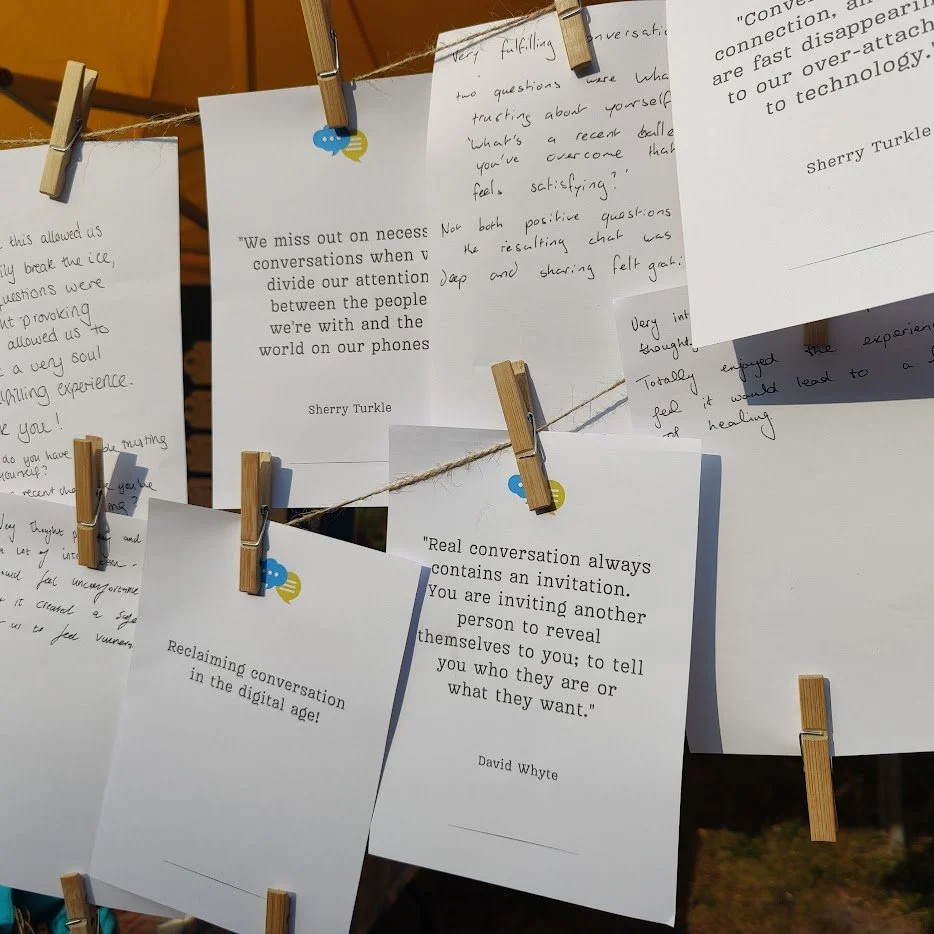 this allowed us
ily break the ice,
uestions were
ht provoking
allowed us to
a very soul
filling experience.
you!
do you have trusting
yourself?
recent you've
Very thought and
lot of
feel uncomfortable
it created a safe
us to feel
"We miss out on necess
conversations when
divide our attention
between the people
we're with and the
world on our phones
Sherry Turkle
Very fulfilling conversatio
two questions were wha
trusting about yourself
'What's a recent
you've overcome that
feels satisfying?'
Not both positive questions
the resulting chat was
deep and sharing felt
"Conver
connection, an
are fast disappearin
to our over-attach
to technology."
Sherry Turkle
Very int
thought.
Totally enjoyed the experien
feel it would lead to a
of healing
Reclaiming conversation
in the digital age!
"Real conversation always
contains an invitation.
You are inviting another
person to reveal
themselves to you; to tell
you who they are or
what they want."
David Whyte